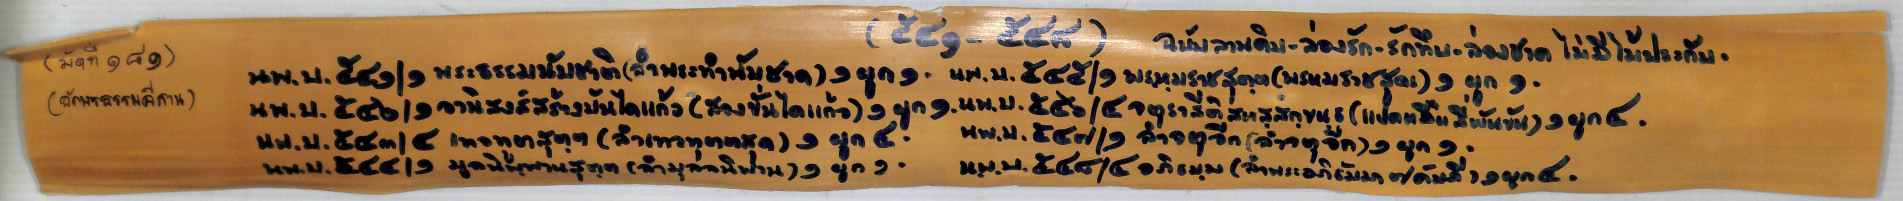 (๕๔๑ - ๕๔๘) ฉบับลานดิบ-ล่องรัก-รักทึบ-ล่องชาด ไม่มีไม้ประกับ.
(มัดที่ ๑๘๑)
(อักษรธรรมอีสาน)
นพ.บ. ๕๔๑/๑ พระธรรมพันชาติ (ลำพระทำพันชาด) ๑ ผูก ๑. นพ.บ. ๕๔๕/๑ พฺรหฺมราชสุตฺต (พรหมราชสูตร) ๑ ผูก ๑.
นพ.บ. ๕๔๒/๑ อานิสงส์สร้างบันไดแก้ว (สองขั่นไดแก้ว) ๑ ผูก ๑. นพ.บ. ๕๔๖/๔ จตุราสีติสหสฺสกฺขนฺธ (แปดหมื่นสี่พันขัน) ๑ ผูก ๔.
นพ.บ. ๕๔๓/๔ เทวทูตสุตฺต (ลำเทวทูตตสูด) ๑ ผูก ๔. นพ.บ. ๕๔๗/๑ ลำจตุจีก (ลำจตุจีก) ๑ ผูก ๑.
นพ.บ. ๕๔๔/๑ มูลนิพฺพานสุตฺต (ลำมูลลนิพาน) ๑ ผูก ๑. นพ.บ. ๕๔๘/๔ อภิธมฺม (ลำพระอภิธัมมา ๗ คัมภี) ๑ ผูก ๔.